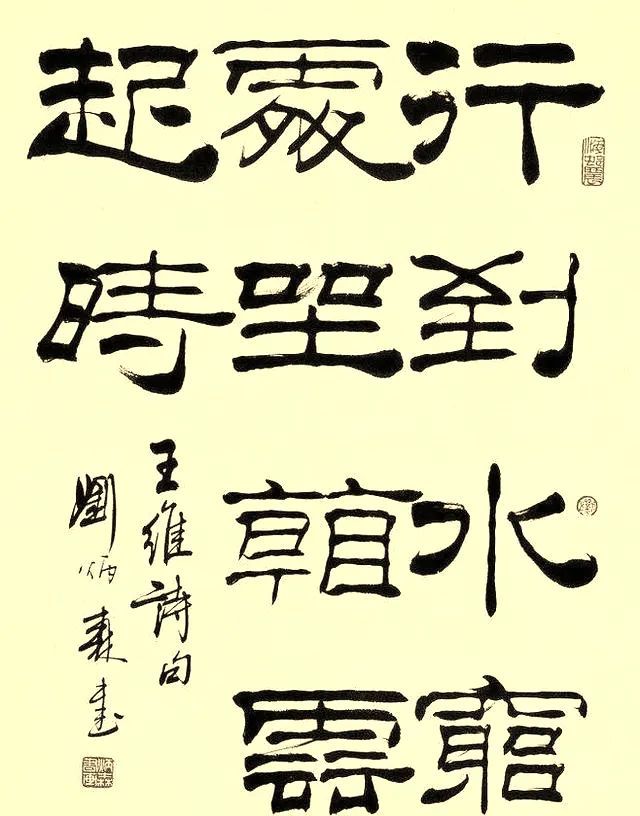 行到水窮
處坐看雲
起時
王維詩句
劉炳森書